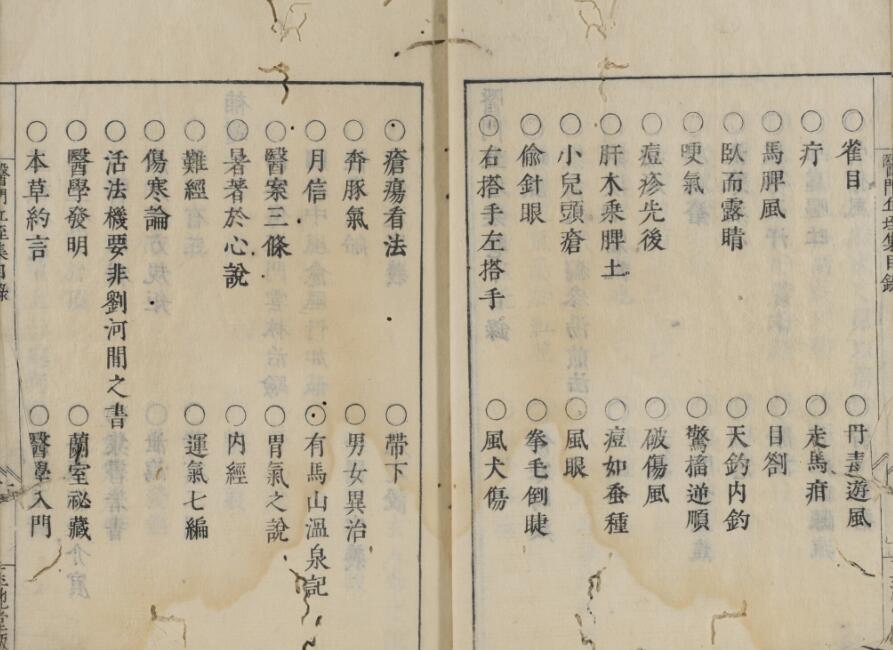 ○雀目 ○丹毒遊風
○疔 ○走馬疳
○馬脾風 ○目劄
○臥而露睛 ○天釣内釣
○哽氣 ○驚搐逆順
○痘疹先後 ○破傷風
○肝木乘脾土 ○痘如蚕種
○小兒頭瘡 ○風眼
○偸針眼 ○拳毛倒睫
○右搭手左搭手 ○風犬傷
○瘡瘍看法 ○帶下
○奔豚氣 ○男女異治
○月信 ○有馬山温泉記
○醫案三條 ○胃氣之說
○暑著於心說 ○内經
○難經 ○運氣七編
○傷寒論
○活法機要非劉河間之書
○醫學發明 ○蘭室祕藏
○本草約言 ○醫學入門